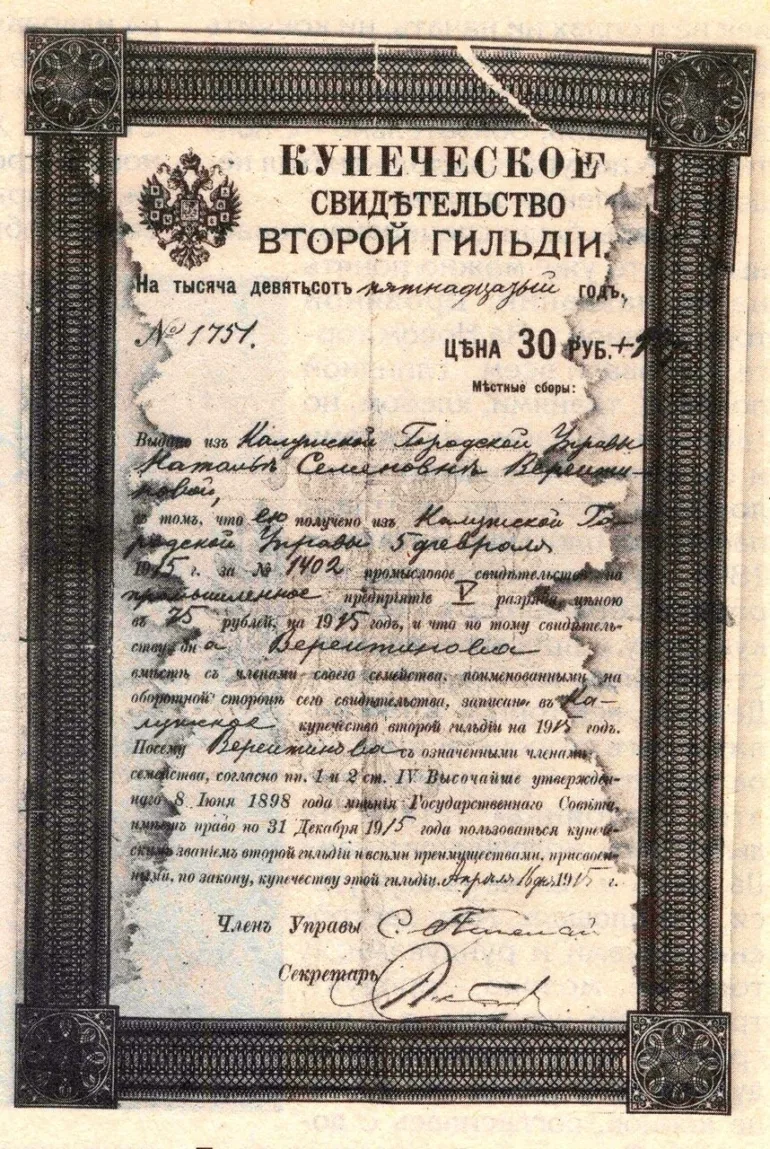 КУПЕЧЕСКОЕ
СВИДѢТЕЛЬСТВО
ВТОРОЙ ГИЛЬДІИ.
На тысяча девятьсотъ пятнадцатый годъ,
№ 1751.
ЦѢНА 30 РУБ.+
Мѣстные сборы:
Выдано изъ Калужской Городской Управы
Натальѣ Семеновнѣ Верейти-
новой,
въ томъ, что ею получено изъ Калужской Го-
родской Управы 5 февраля
1915 г. за № 1402 промысловое свидѣтельство на
промышленное предпріятіе V разряда, цѣною
въ 75 рублей, на 1915 годъ, и что по тому свидѣтель-
ству он а Верейтинова
вмѣстѣ съ членами своего семейства, поименованными на
оборотной сторонѣ сего свидѣтельства, записана въ Ка-
лужское купечество второй гильдіи на 1915 годъ.
Посему Верейтинова съ означенными членами
семейства, согласно пп. 1 и 2 ст. IV Высочайше утвержден-
наго 8 Іюня 1898 года мнѣнія Государственнаго Совѣта,
имѣетъ право по 31 Декабря 1915 года пользоваться купече-
скимъ званіемъ второй гильдіи и всѣми преимуществами, присвоен-
ными, по закону, купечеству этой гильдіи. Апрѣля 16 дня 1915 г.
Членъ Управы
Секретарь